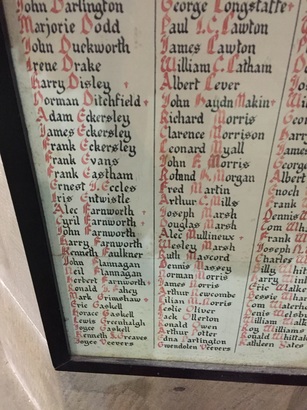 John Darlington
Marjorie Dodd
John Duckworth
Irene Drake
Harry Disley
Norman Ditchfield +
Adam Eckersley
James Eckersley
Frank Eckersley
Frank Evans
Frank Eastham
Ernest J. Eccles
Iris Entwistle
Alec Farnworth +
Cyril Farnworth
John Farnworth
Harry Farnworth
Kenneth Faulkner
John Flannagan
Neil Flannagan
Herbert Farnworth +
Ronald Fahey
Mark Grimshaw +
Eric Gaskell
Horace Gaskell
Lewis Greenhalgh
Joyce Gaskell
Kenneth Greaves
Joyce Veevers
George Longstaffe +
Paul Lawton
James Lawton
William C. Latham
Albert Lever
John Haydn Makin +
Richard Morris
Clarence Morrison
Leonard Myall
John F. Morris
Roland A. Morgan
Fred Martin
Arthur C. Mills
Joseph Marsh
Douglas Marsh
Alec Mullineux +
Wesley Marsh
Ruth Mascord
Dennis Massey
Norman Morris
James Morris
Arthur Newcombe
Lilian Morris
Leslie Oliver
Jack Ollerton
Ronald Owen
Arthur Potter
Edna Partington
Gwendolen Veevers
Geo
Jam
Geo
Geo
Geor
Albert
Enoch
Frank
Dennis
Geo
Tom Wh
Frank
Joseph
Charles
Jilly
Harry
Eric Walke
Tom
Denis Welsby
William
Roy Williams
Ronald Whittak
Kathleen